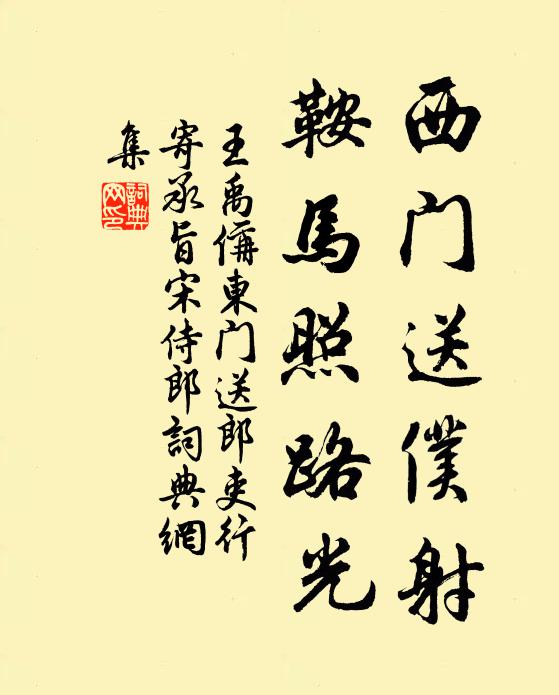 西门送僕射
鞍馬照路光
王禹偁東门送郎吏行
寄承旨宋侍郎詞典網
集
詞典网印